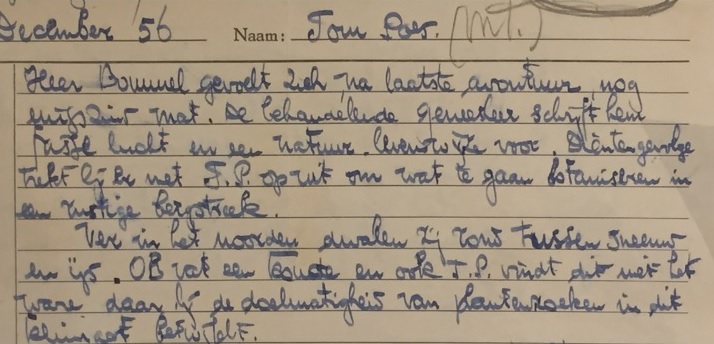 December '56 Naam: Tom Poes. (MT.)
Heer Bommel gevoelt zich, na laatste avontuur, nog
enigszins mat. De behandelende geneesheer schrijft hem
frisse lucht en een natuur. levenswijze voor. Dientengevolge
trekt hij er met T.P. op uit om wat te gaan botaniseren in
een rustige bergstreek.
Ver in het noorden dwalen zij rond tussen sneeuw
en ijs. OB vat een koude en ook T.P. vindt dit niet het
ware daar hij de doelmatigheid van plantenzoeken in dit
klimaat betwijfelt.